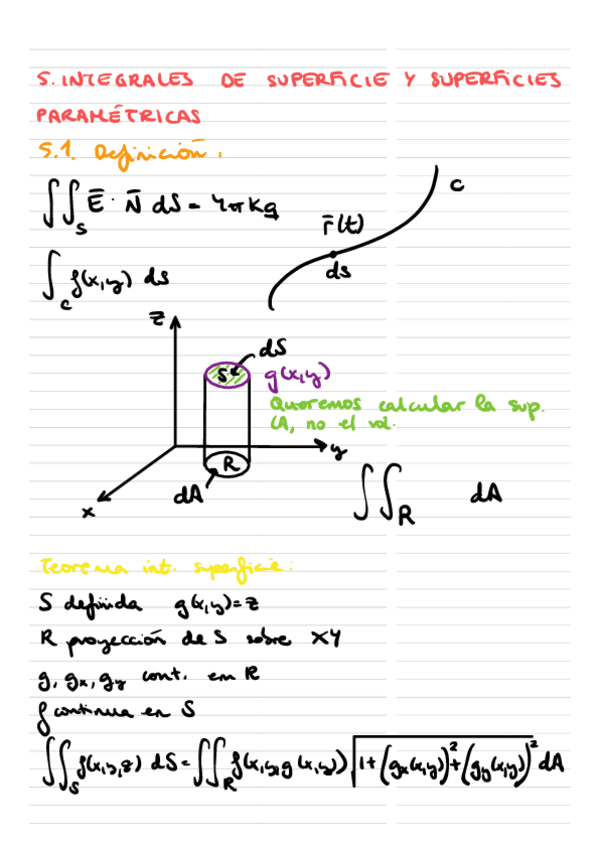 5. INTEGRALES DE SUPERFICIE Y SUPERFICIES
PARAMÉTRICAS
5.1. Definición:
∫∫_S Ē · N̄ dS = 4πKq
c
r̄(t)
ds
∫_C f(x,y) ds
z
dS
S
g(x,y)
Queremos calcular la sup.
(A, no el vol.
y
R
dA
x
∫∫_R dA
Teorema int. superficie:
S definida g(x,y)=z
R proyección de S sobre XY
g, gx, gy cont. en R
f continua en S
∫∫_S f(x,y,z) dS = ∫∫_R f(x,y,g(x,y)) √(1+(gx(x,y))²+(gy(x,y))²) dA